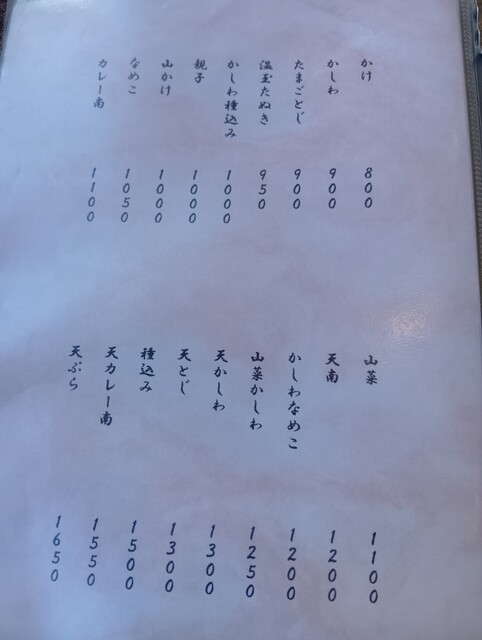 かけ 800
かしわ 900
たまごとじ 900
温玉たぬき 950
かしわ種込み 1000
親子 1000
山かけ 1000
なめこ 1050
カレー南 1100
山菜 1100
天南 1200
かしわなめこ 1200
山菜かしわ 1250
天かしわ 1300
天とじ 1300
種込み 1500
天カレー南 1550
天ぷら 1650